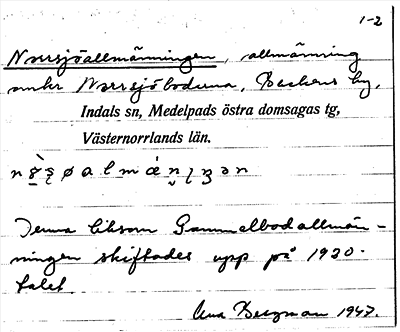 1-2
Norrsjöallmänningen, allmänning
under Norrsjöbodarna, Backens by,
Indals sn, Medelpads östra domsagas tg,
Västernorrlands län.
Denna liksom Gammelbodallmän-
ningen skiftades upp på 1920-
talet.
Bergman 1947.